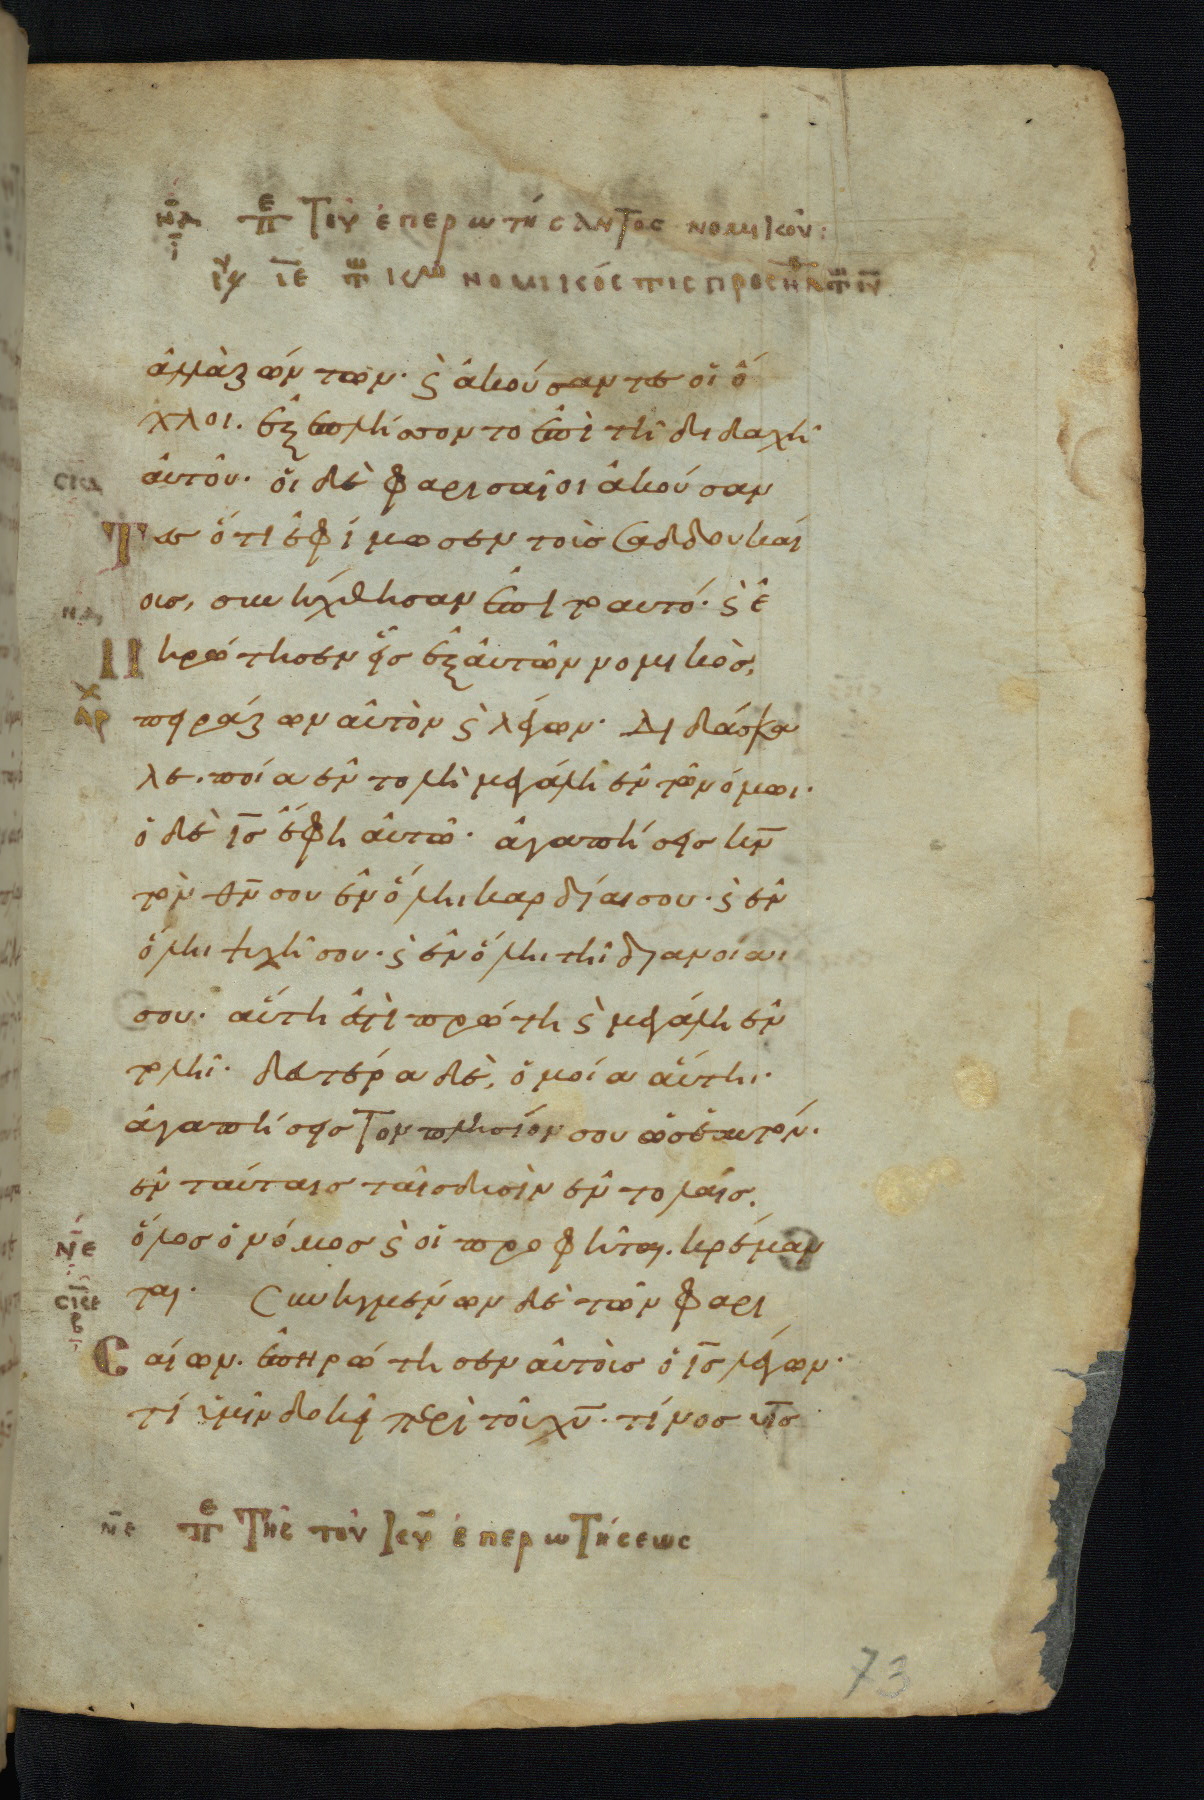 νδ πε Του ἐπερωτήσαντος νομικοῦ:
κυ ιε τω νομικός τις προσῆλθεν τω ιυ
ἀλλάζώντων· ϛ ἀκούσαντες οἱ ὄ
χλοι. ἐξεπλήσσοντο ἐπὶ τῆ διδαχῆ
αὐτοῦ· οἱ δὲ φαρισαῖοι ἀκούσαν
Τες ὅτι ἐφίμωσεν τοὺς σαδδουκαί
ους, συνήχθησαν ἐπὶ τὸ αυτό· ϛ ἐ
πηρώτησεν εἷς ἐξ αὐτῶν νομικὸς,
πειράζων αὐτὸν ϛ λέγων· Διδάσκα
λε. ποία ἐντολὴ μεγάλη ἐν τῶ νόμωι·
ὁ δὲ ις ἔφη αὐτῶ· ἀγαπήσεις κν
τὸν θν σου ἐν ὅληι καρδίαι σου· ϛ ἐν
ὅληι ψυχῆ σου· ϛ ἐν ὅληι τῆ διανοίαι
σου· αὕτη ἐστὶ πρώτη ϛ μεγάλη ἐν
τολή· δευτέρα δὲ, ὁμοία αὕτηι·
ἀγαπήσεις Τον πλησίον σου ὡς ἑαυτόν·
ἐν ταύταις ταῖς δυσὶν ἐντολαῖς.
ὅλος ὁ νόμος ϛ οἱ προφῆται. κρέμαν
ται· Συνηγμένων δὲ τῶν φαρι
Σαίων. ἐπηρώτησεν αὐτοὺς ὁ ις λέγων·
τί ὑμῖν δοκεῖ περὶ τοῦ χυ· τίνος υις
νε πε Τῆς τοῦ Ιυ ἐπερωΤήσεως
73